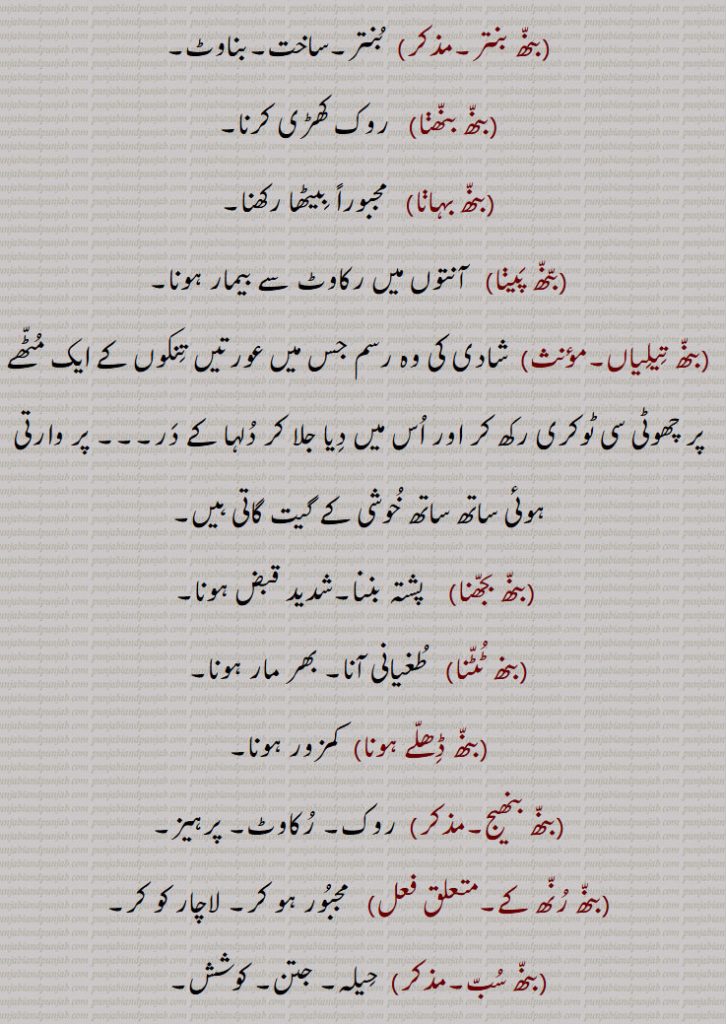 (بنھّ بنتر۔مذکر) بُنتر۔ساخت۔بناوٹ۔
(بنھّ بنھّݨا) روک کھڑی کرنا۔
(بنھّ بہاݨا) مجبوراً بِیٹھا رکھنا۔
(بنھّ پَیݨا) آنتوں میں رکاوٹ سے بیمار ہونا۔
(بنھّ تِیلِیاں۔مؤنث) شادی کی وہ رسم جس میں عورتیں تِنکوں کے ایک مُٹھّے
پر چھوٹی سی ٹوکری رکھ کر اور اُس میں دِیا جلا کر دُلہا کے دَر۔۔۔ پر وارتی
ہوئی ساتھ ساتھ خُوشی کے گیت گاتی ہیں۔
(بنھّ بجھّنا) پشتہ بننا۔شدید قبض ہونا۔
(بنھ ٹُٹّنا) طُغیانی آنا۔ بھر مار ہونا۔
(بنھّ ڈِھلّے ہونا) کمزور ہونا۔
(بنھّ بنھیج۔مذکر) روک۔ رُکاوٹ۔ پرہیز۔
(بنھّ رُنھّ کے۔متعلق فعل) مجبُور ہو کر۔ لاچار کو کر۔
(بنھّ سُبّ۔مذکر) حِیلہ۔ جتن۔ کوشش۔